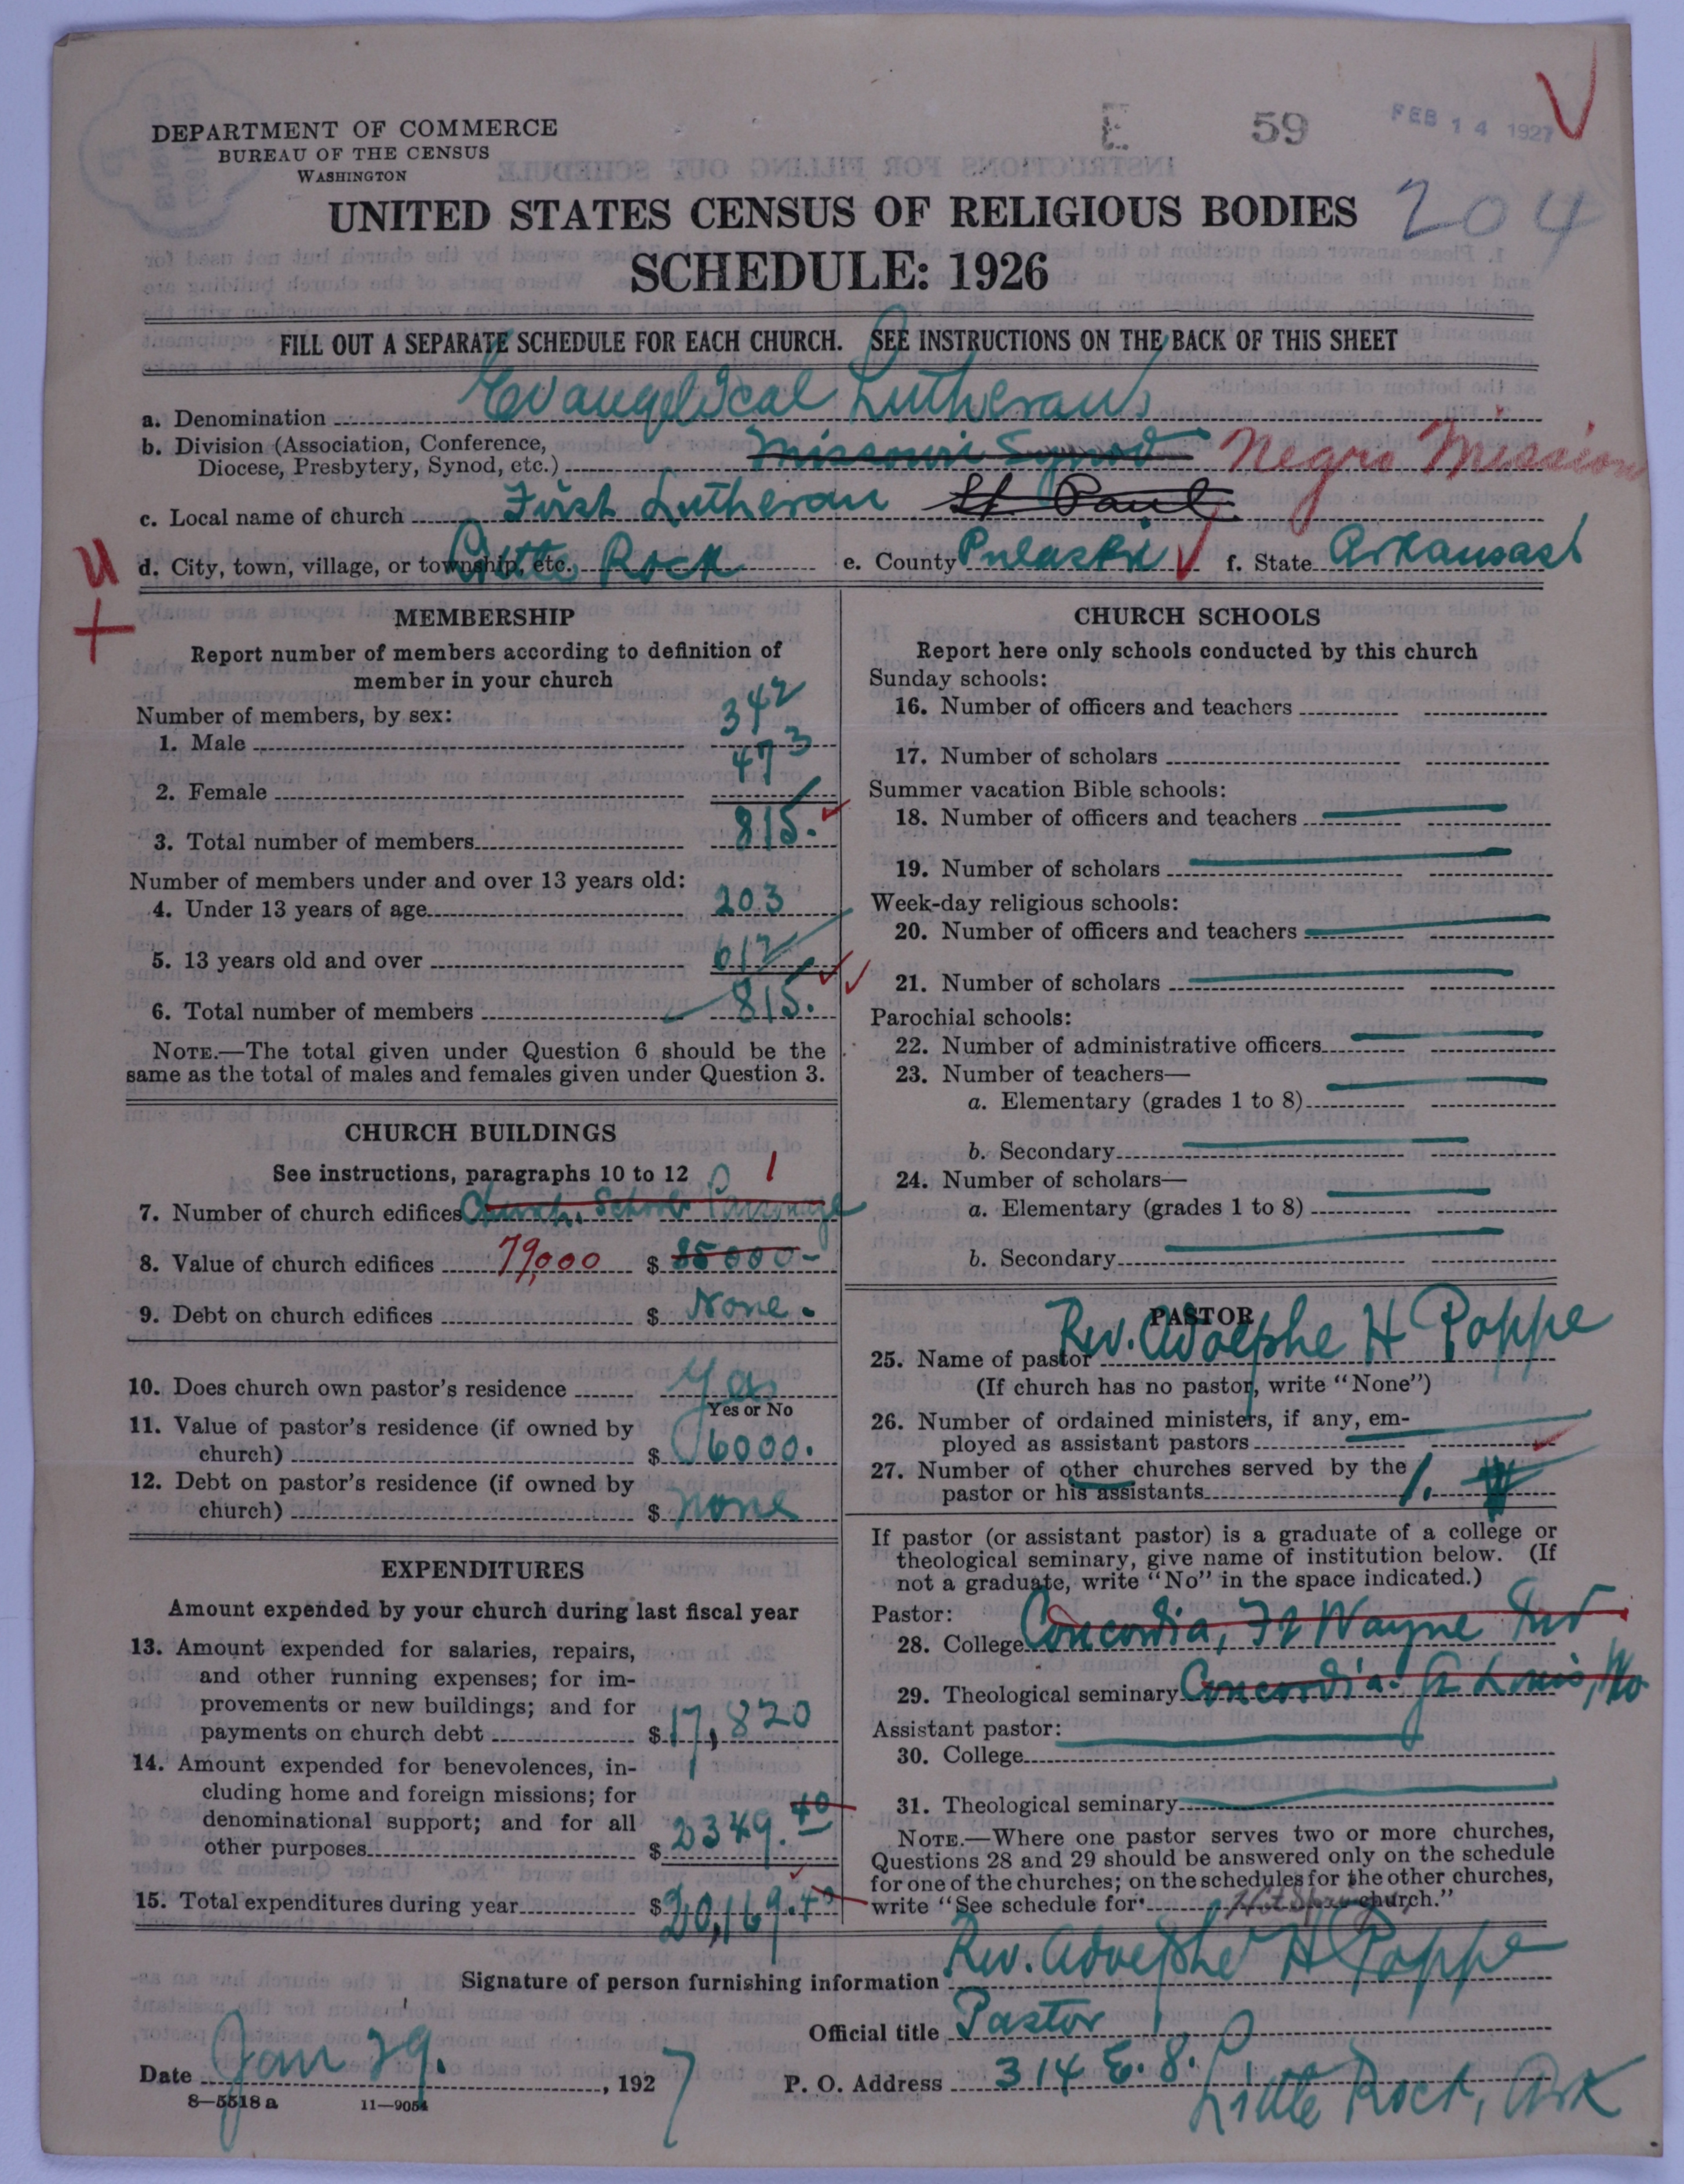 DEPARTMENT OF COMMERCE
BUREAU OF THE CENSUS
WASHINGTON
E 59 FEB 14 1927
204
UNITED STATES CENSUS OF RELIGIOUS BODIES
SCHEDULE: 1926
FILL OUT A SEPARATE SCHEDULE FOR EACH CHURCH. SEE INSTRUCTIONS ON THE BACK OF THIS SHEET
a. Denomination Evangelical Lutheran
b. Division (Association, Conference,
Diocese, Presbytery, Synod, etc.) Missouri Synod Negro Mission
c. Local name of church First Lutheran St. Paul
d. City, town, village, or township, etc. Little Rock e. County Pulaski f. State Arkansas
U
+
MEMBERSHIP
Report number of members according to definition of
member in your church
Number of members, by sex:
1. Male 342
2. Female 473
3. Total number of members 815.
Number of members under and over 13 years old:
4. Under 13 years of age 203
5. 13 years old and over 612
6. Total number of members 815.
NOTE.—The total given under Question 6 should be the
same as the total of males and females given under Question 3.
CHURCH BUILDINGS
See instructions, paragraphs 10 to 12
1
7. Number of church edifices Church, School Parsonage
8. Value of church edifices 79,000 $ 85000-
9. Debt on church edifices $ None.
10. Does church own pastor's residence Yes
Yes or No
11. Value of pastor's residence (if owned by
church) $ 6000.
12. Debt on pastor's residence (if owned by
church) $ none
EXPENDITURES
Amount expended by your church during last fiscal year
13. Amount expended for salaries, repairs,
and other running expenses; for im-
provements or new buildings; and for
payments on church debt $ 17,820
14. Amount expended for benevolences, in-
cluding home and foreign missions; for
denominational support; and for all
other purposes $ 2349.40
15. Total expenditures during year $ 20,169.40
CHURCH SCHOOLS
Report here only schools conducted by this church
Sunday schools:
16. Number of officers and teachers
17. Number of scholars
Summer vacation Bible schools:
18. Number of officers and teachers
19. Number of scholars
Week-day religious schools:
20. Number of officers and teachers
21. Number of scholars
Parochial schools:
22. Number of administrative officers
23. Number of teachers—
a. Elementary (grades 1 to 8)
b. Secondary
24. Number of scholars—
a. Elementary (grades 1 to 8)
b. Secondary
PASTOR
25. Name of pastor Rev. Adolphe H Poppe
(If church has no pastor, write "None")
26. Number of ordained ministers, if any, em-
ployed as assistant pastors
27. Number of other churches served by the
pastor or his assistants 1.
If pastor (or assistant pastor) is a graduate of a college or
theological seminary, give name of institution below. (If
not a graduate, write "No" in the space indicated.)
Pastor:
28. College Concordia, Ft Wayne Ind
29. Theological seminary Concordia. St Louis, Mo.
Assistant pastor:
30. College
31. Theological seminary
NOTE.—Where one pastor serves two or more churches,
Questions 28 and 29 should be answered only on the schedule
for one of the churches; on the schedules for the other churches,
write "See schedule for Hot Springs church."
Signature of person furnishing information Rev. Adolphe H Poppe
Official title Pastor
Date Jan 29. , 1927
P. O. Address 314 E. 8.
Little Rock, Ark
8—5518 a 11—9054